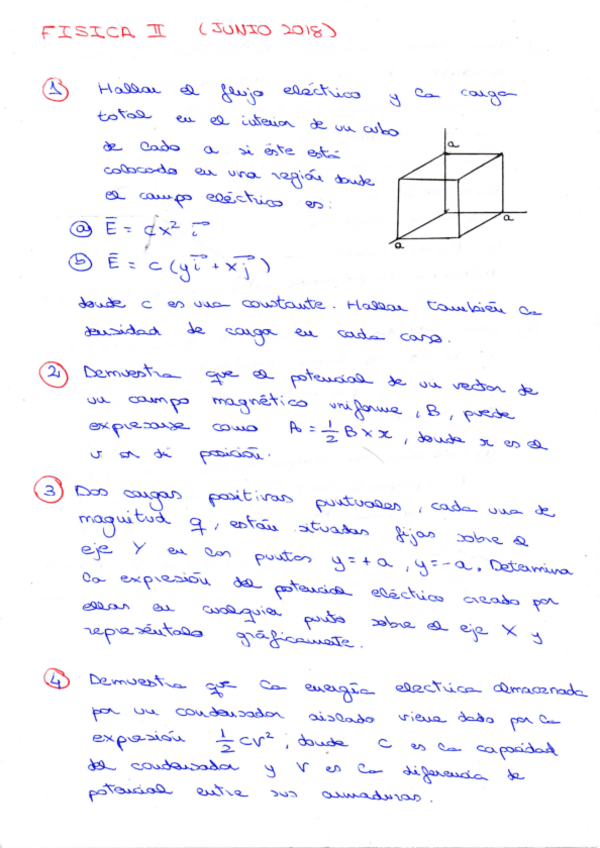 FISICA II (JUNIO 2018)
1 Hallar el flujo eléctrico y la carga
total en el interior de un cubo
de lado a si éste está
colocado en una región donde
el campo eléctrico es:
a
a
a
a) E = cx² i
b) E = c (yi + xj)
donde c es una constante. Hallar también la
densidad de carga en cada caso.
2 Demuestra que el potencial de un vector de
un campo magnético uniforme, B, puede
expresarse como A = 1/2 B x x, donde x es el
de posición.
3 Dos cargas positivas puntuales, cada una de
magnitud q, están situadas fijas sobre el
eje Y en los puntos y=+a, y=-a. Determina
la expresión del potencial eléctrico creado por
ellas en cualquier punto sobre el eje X y
represéntalo gráficamente.
4 Demuestra que la energía electrica almacenada
por un condensador aislado viene dado por la
expresión 1/2 CV², donde C es la capacidad
del condensador y V es la diferencia de
potencial entre sus armaduras.